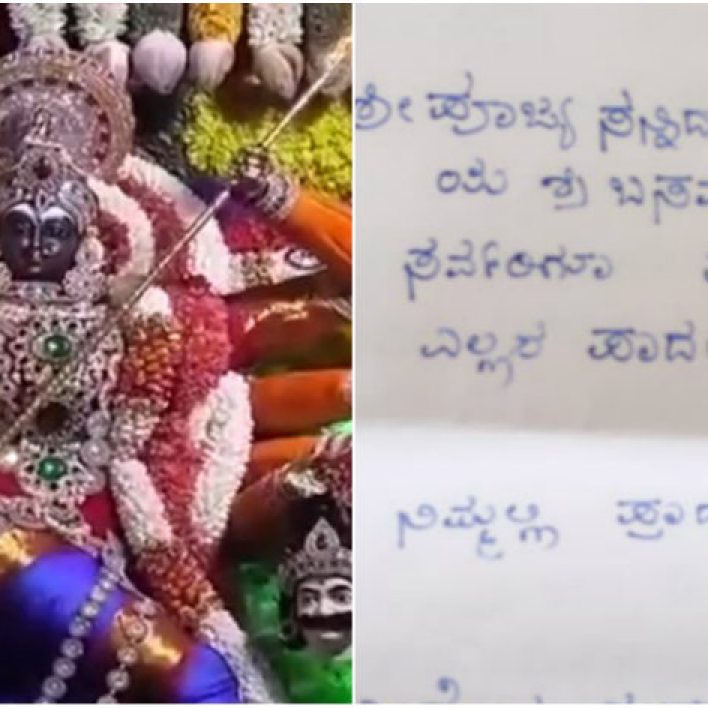 ಶ್ರೀ ಪೂಜ್ಯ ಸನ್ನಿದ
ಯ ಶ್ರೀ ಬಸವ
ಸರ್ವರಿಗೂ
ಎಲ್ಲರ ಪಾದ
ನಿಮ್ಮಲ್ಲಿ ಪ್ರಾ